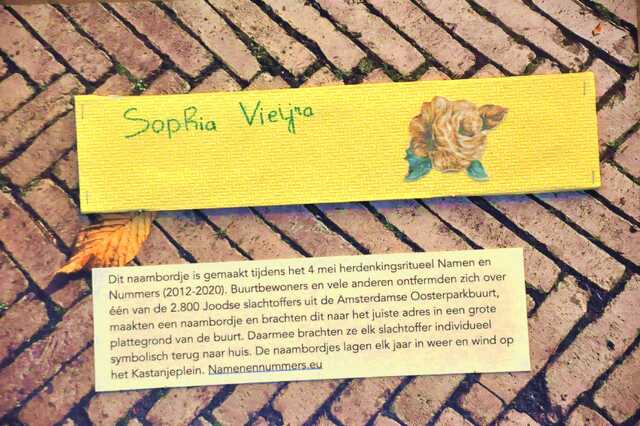 Sophia Vieijra
Dit naambordje is gemaakt tijdens het 4 mei herdenkingsritueel Namen en
Nummers (2012-2020). Buurtbewoners en vele anderen ontfermden zich over
één van de 2.800 Joodse slachtoffers uit de Amsterdamse Oosterparkbuurt,
maakten een naambordje en brachten dit naar het juiste adres in een grote
plattegrond van de buurt. Daarmee brachten ze elk slachtoffer individueel
symbolisch terug naar huis. De naambordjes lagen elk jaar in weer en wind op
het Kastanjeplein. Namenennummers.eu